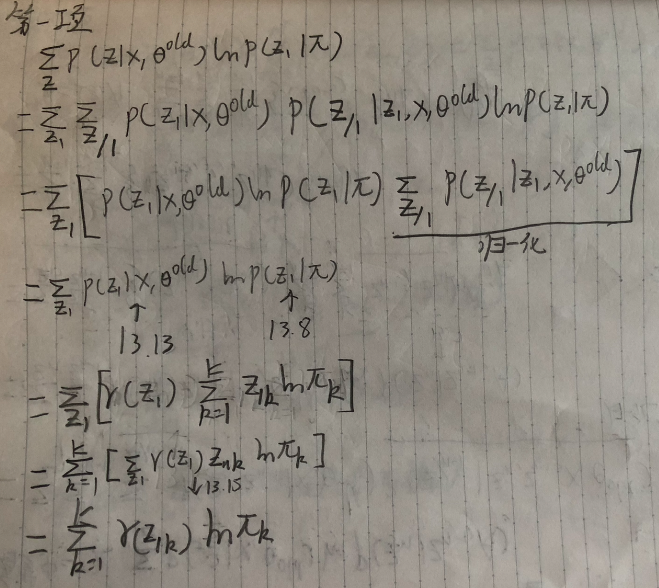 第一项
∑_Z P(Z|X, θ^old) ln P(z_1|π)
= ∑_{z_1} ∑_{Z_{/1}} P(z_1|X, θ^old) P(Z_{/1}|z_1, X, θ^old) ln P(z_1|π)
= ∑_{z_1} [ P(z_1|X, θ^old) ln P(z_1|π) ∑_{Z_{/1}} P(Z_{/1}|z_1, X, θ^old) ]
归一化
= ∑_{z_1} P(z_1|X, θ^old) ln P(z_1|π)
↑ ↑
13.13 13.8
= ∑_{z_1} [ γ(z_1) ∑_{k=1}^K z_{1k} ln π_k ]
= ∑_{k=1}^K [ ∑_{z_1} γ(z_1) z_{nk} ln π_k ]
↓13.15
= ∑_{k=1}^K γ(z_{1k}) ln π_k